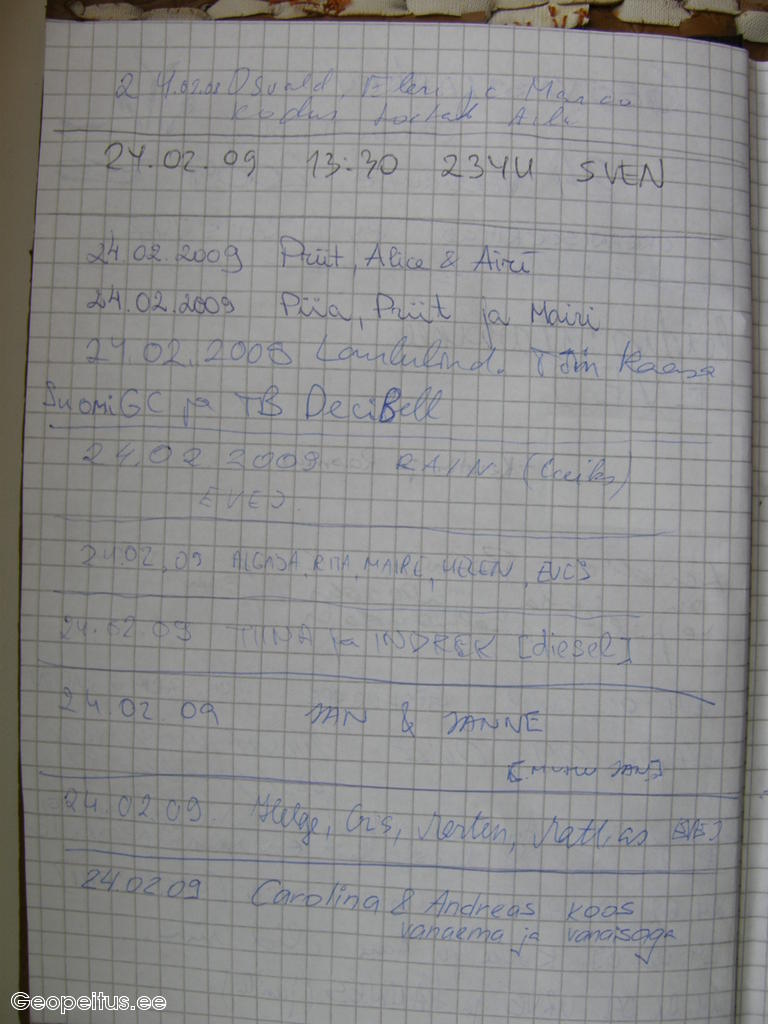 24.02.09 Osvald, Eleri ja Marco
kodus ootab
24.02.09 13:30 234U SVEN
24.02.2009 Priit, Alice & Airi
24.02.2009 Piia, Priit ja Mairi
24.02.2009 Laululind. Tõin kaasa
SuomiGC ja TB DeciBell
24.02 2009 RAIN
EVEJ
24.02.09 RITA, MAIRE, HELEN, EVEJ
24.02.09 TIINA ja INDREK [diesel]
24.02.09 JAN & JANNE
24.02.09. Helge, Cris, Morten, Mattias
24.02 09 Carolina & Andreas koos
vanaema ja vanaisaga
Geopeitus.ee